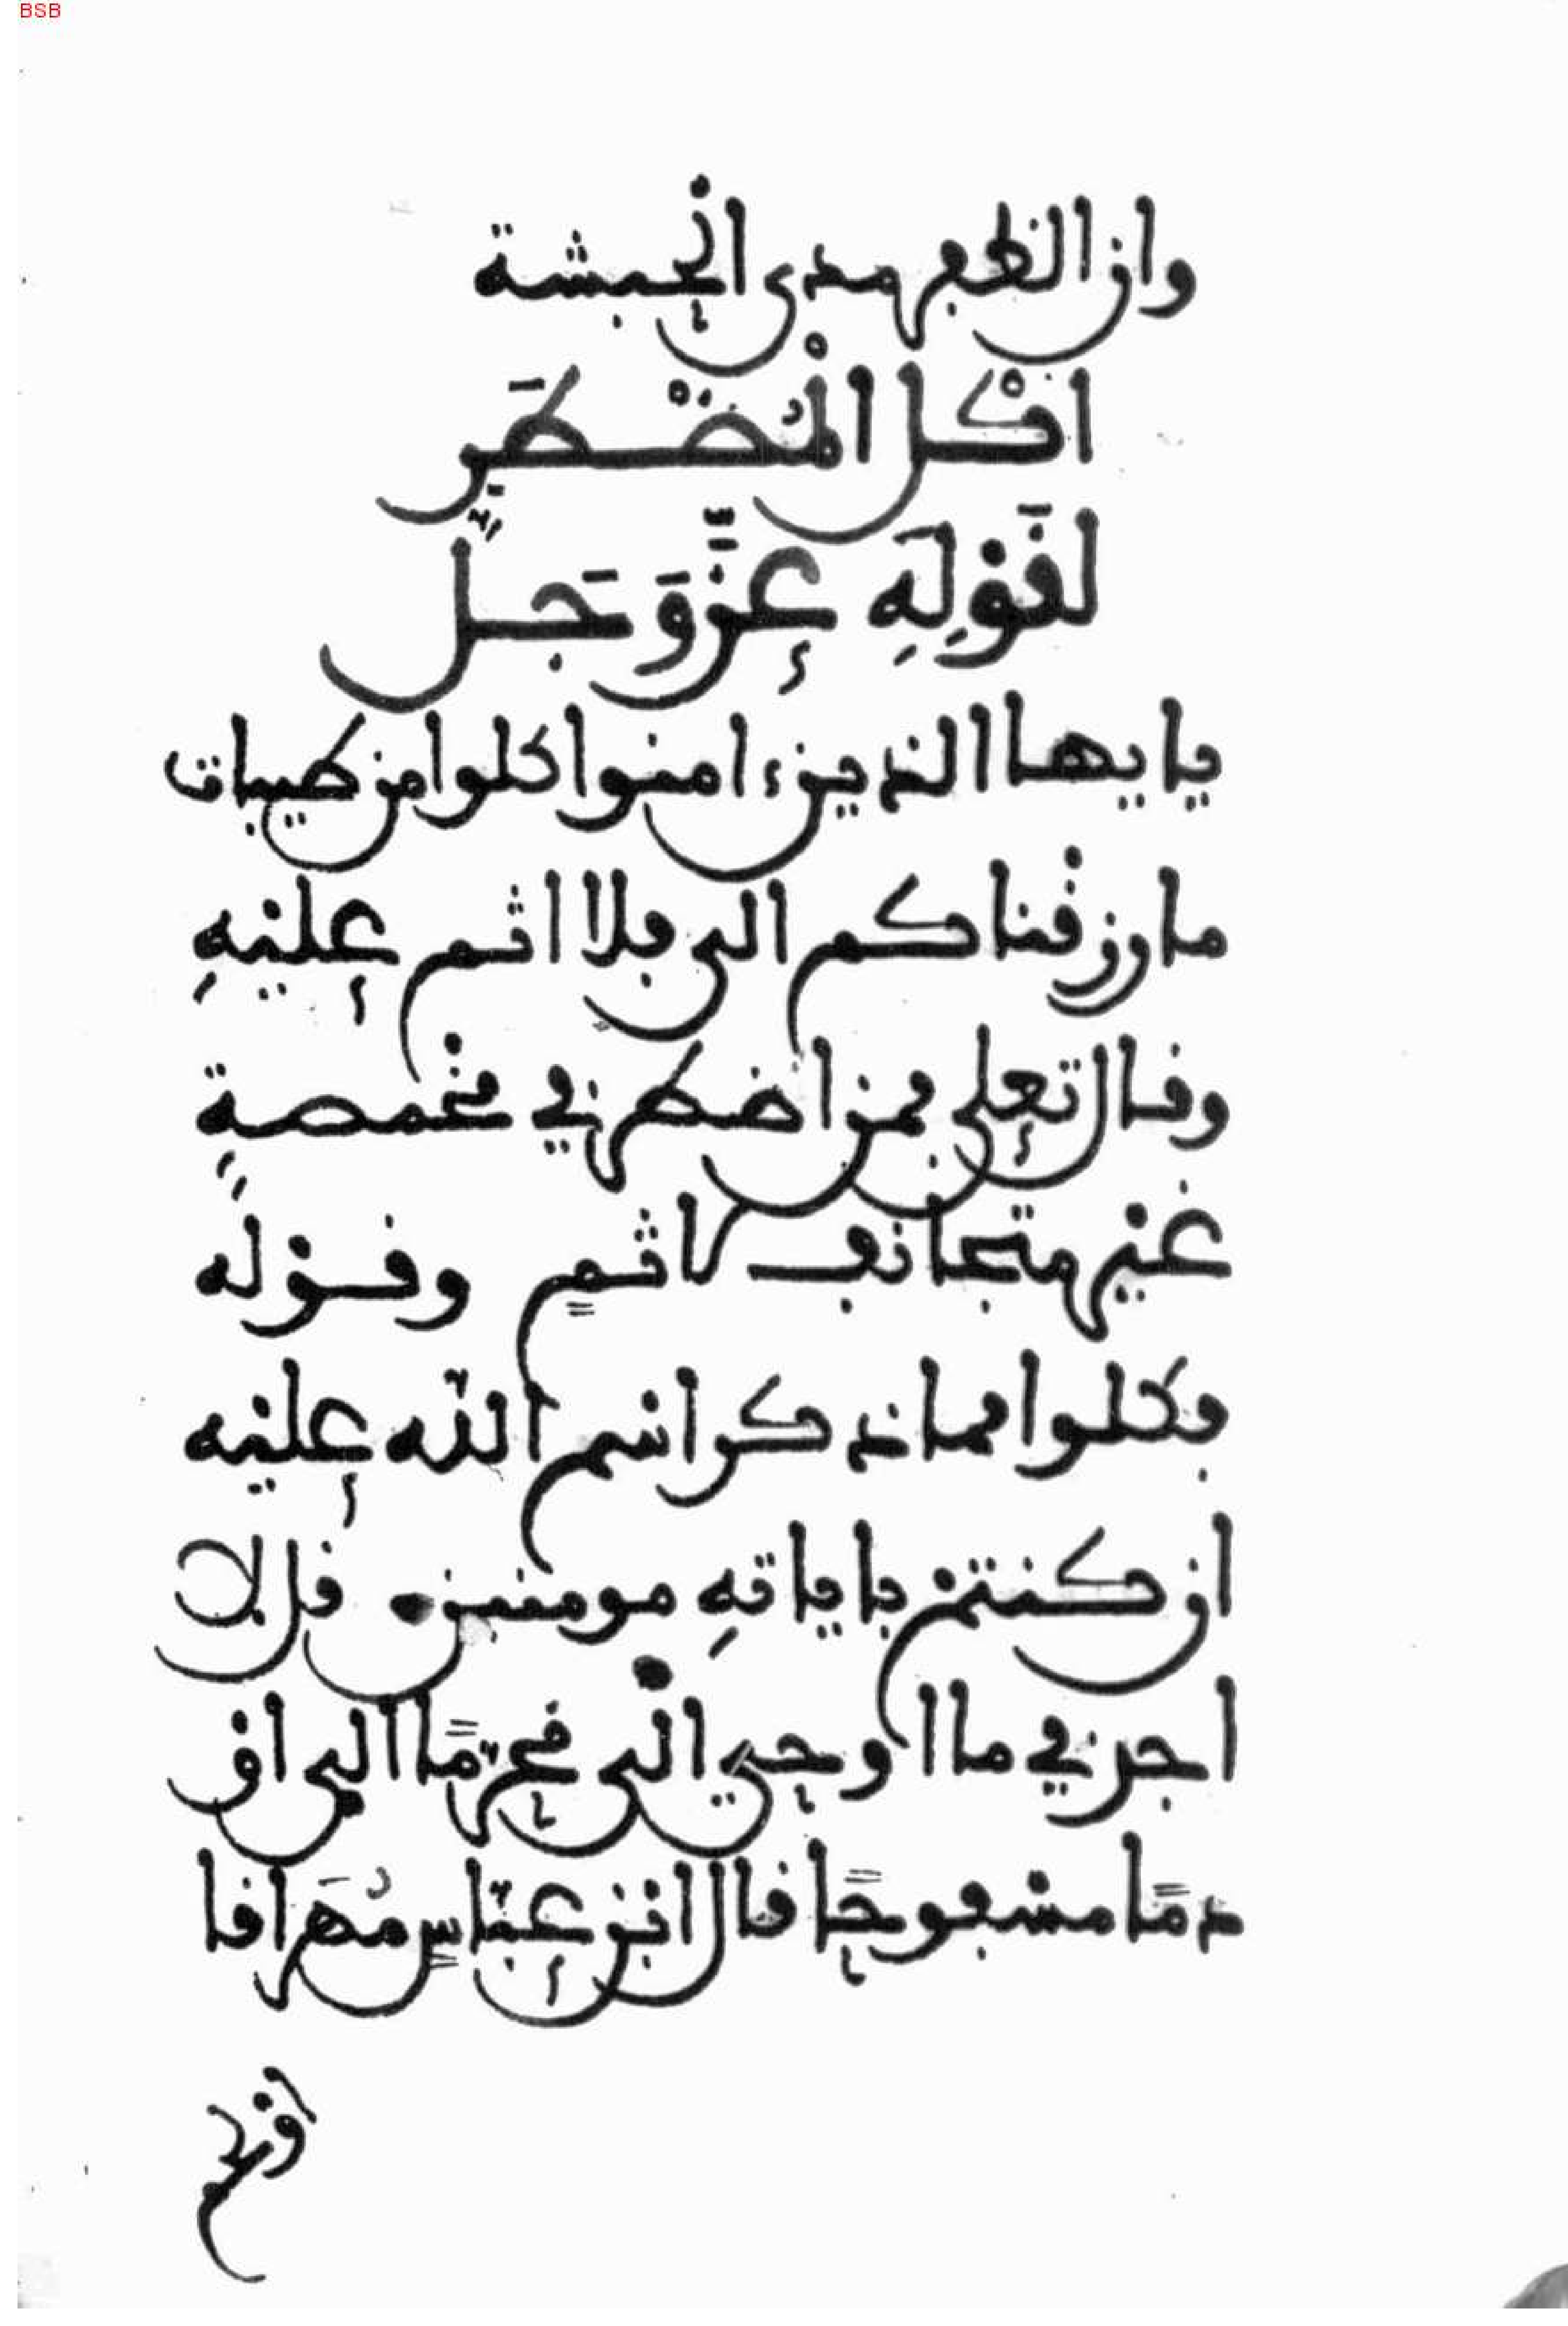 BSB
وان الظفر مدى الحبشة
اكْل المُضْطَرِّ
لقَوْلِهِ عَزَّ وَجَلَّ
يايها الذين ءامنوا كلوا من طيبات
ما رزقناكم الى فلا اثم عليْهِ
وقال تعلى فمن اضطر في مخمصةٍ
غير متجانف لاثمٍ وقوله
فكلوا مما ذكر اسم اللّه عليه
ان كنتم باياتهِ مومنين قل لا
اجد في ما اوحي الي محرّمًا الى اوْ
دمًا مسفوحًا قال ابن عبّاسٍ مُهَراقا
اوْ لحم